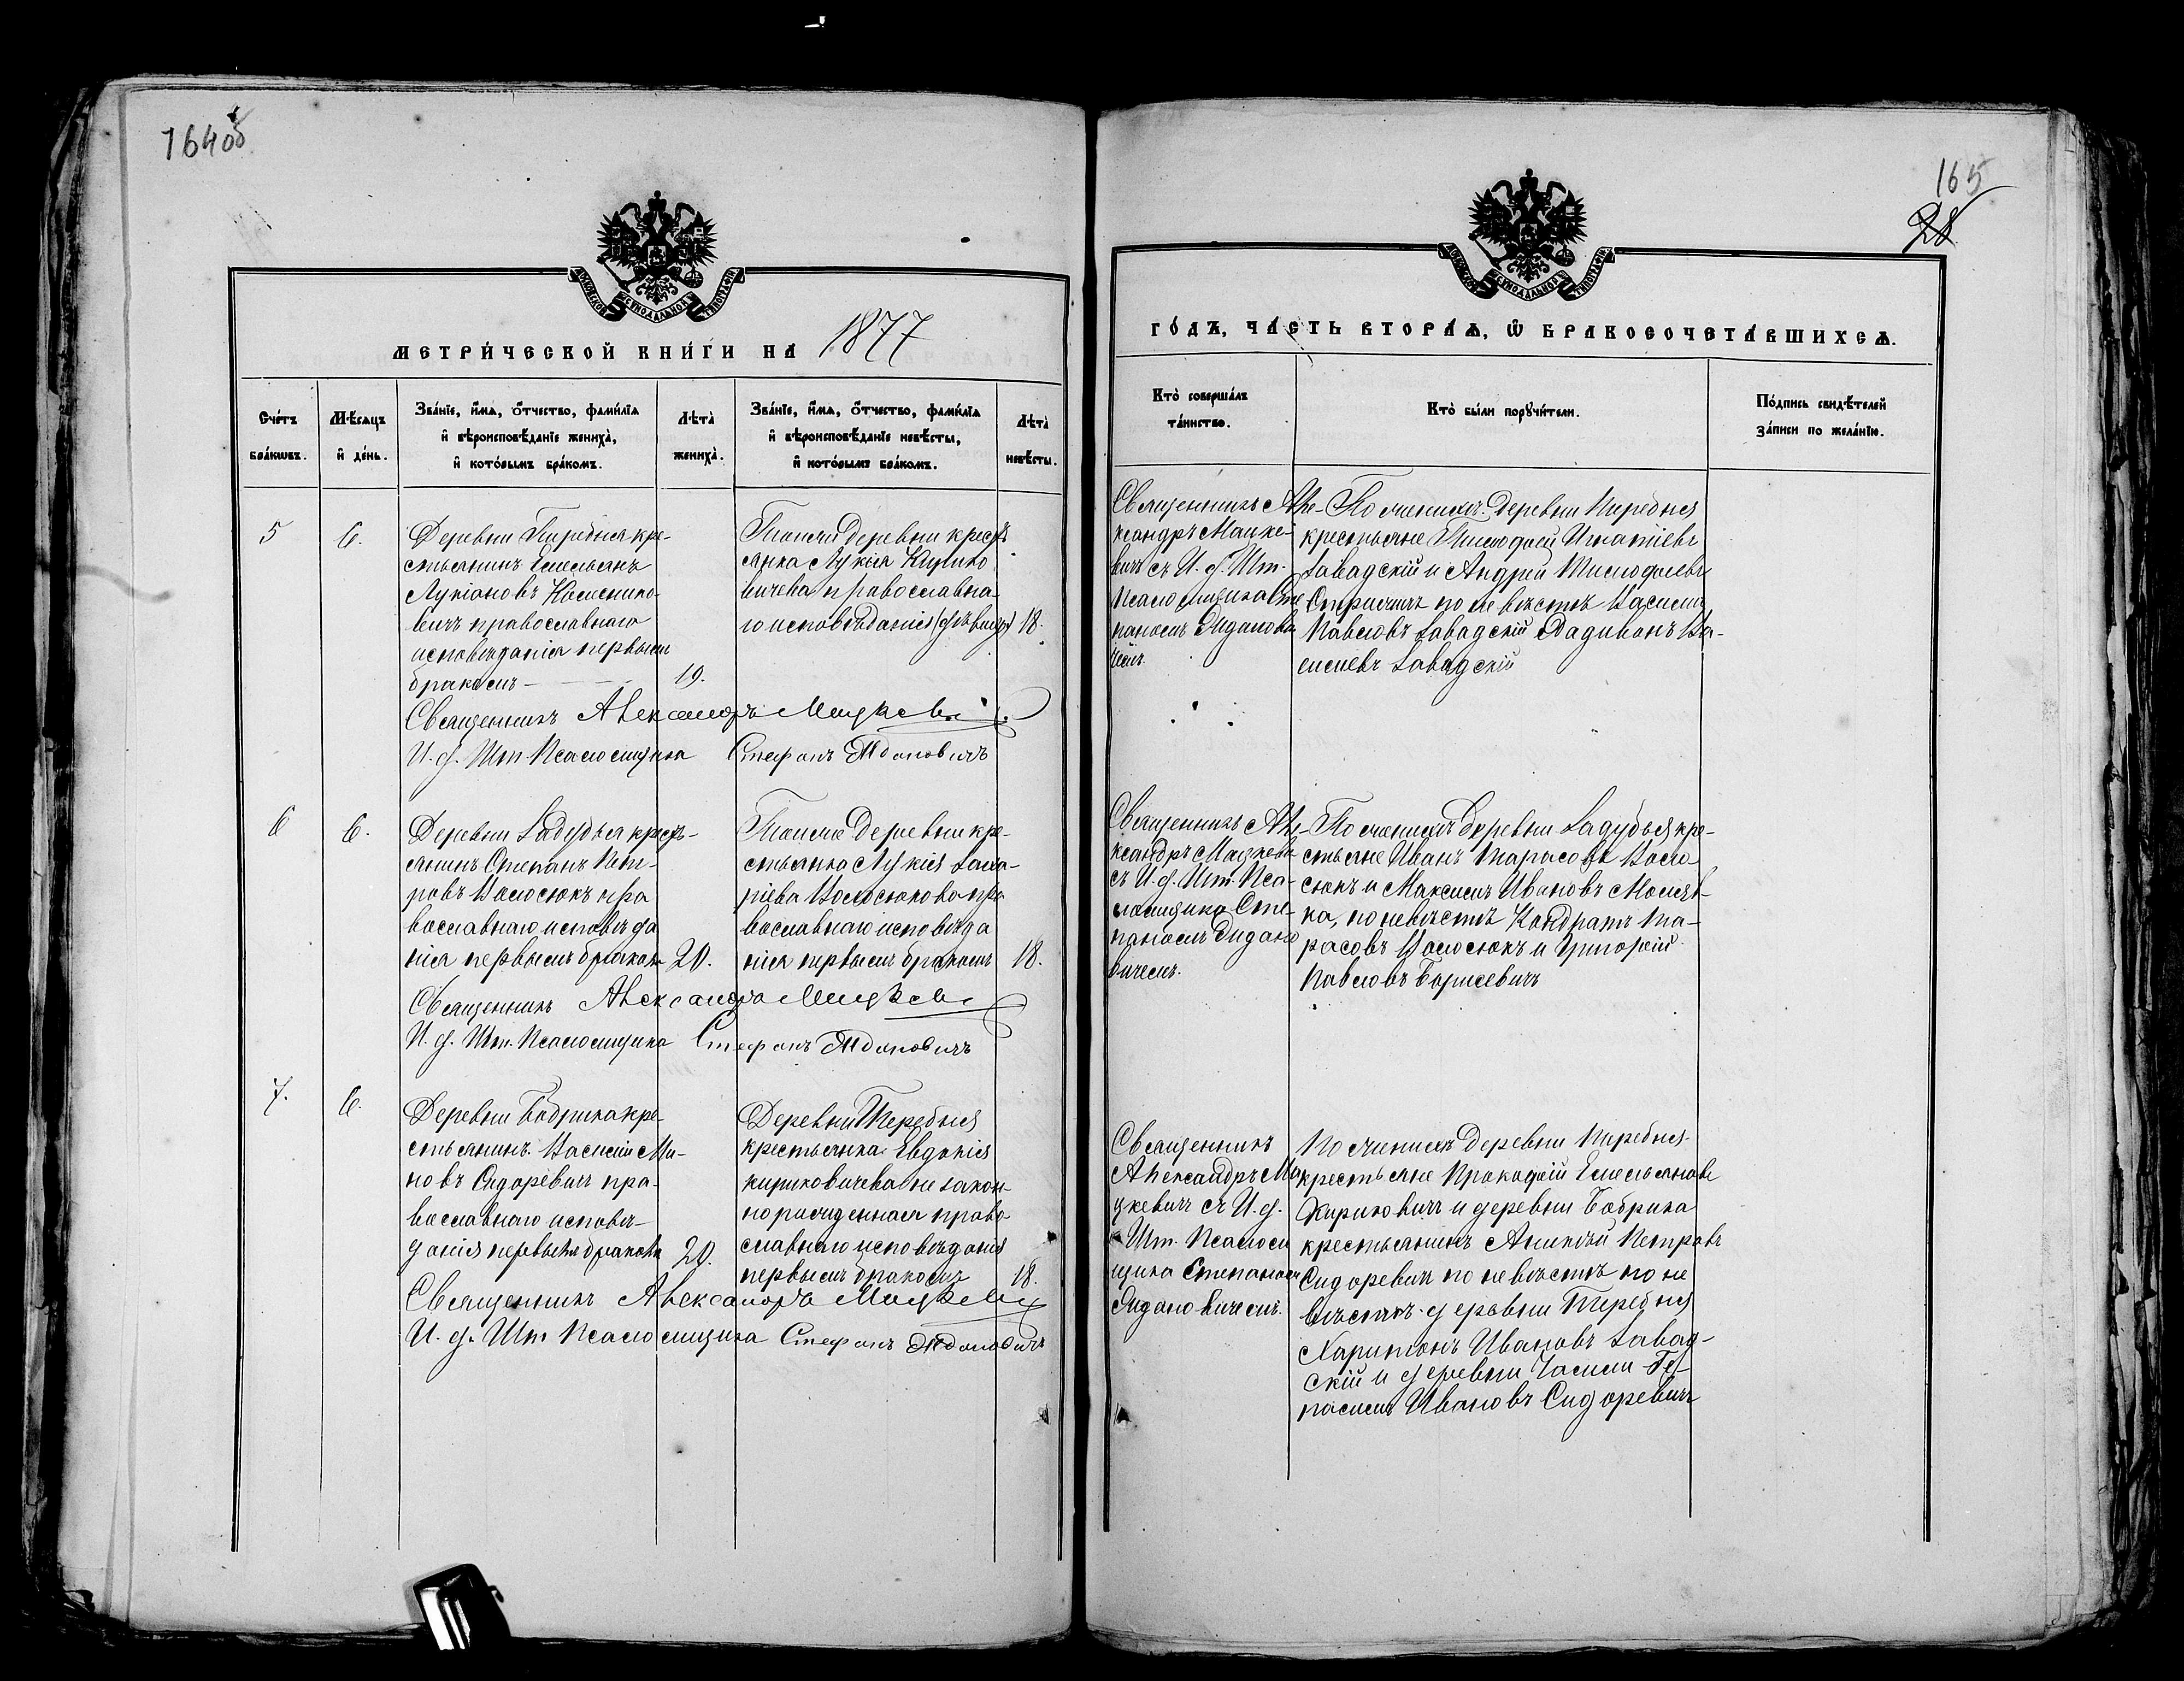 164 об
165
28
МЕТРИ́ЧЕСКОЙ КНИ́ГИ НА 1877
ГО́ДЪ, ЧА́СТЬ ВТОРА́Ѧ, Ѽ БРАКОСОЧЕТА́ВШИХСѦ.
Сче́тъ бра́кѡвъ.
Мѣ́сѧцъ и҆ де́нь.
Зва́нїе, и҆́мѧ, ѻ҆́тчество, фами́лїѧ
и҆ вѣроисповѣ́данїе жениха̀,
и҆ кото́рымъ бра́комъ.
Лѣта̀ жениха̀.
Зва́нїе, и҆́мѧ, ѻ҆́тчество, фами́лїѧ
и҆ вѣроисповѣ́данїе невѣ́сты,
и҆ кото́рымъ бра́комъ.
Лѣта̀ невѣ́сты.
Кто̀ соверша́лъ
та́инство.
Кто̀ бы́ли порꙋчи́тели.
По́дпись свидѣ́телей
за́писи по жела́нїю.
5
6.
Деревни Теребня кре-
стьянинъ Емельянъ
Лукіановъ
вичъ православнаго
исповѣданія первымъ
бракомъ —
19.
Тойже деревни крест
янка Лукія Кирико
вичева православна
го исповѣданія
18.
Священникъ Але-
ксандръ Мацке-
вичъ съ И. д. Шт.
Псаломщика Сте
паномъ Ждано
вичемъ
По женихѣ деревни Теребня
крестьяне Тимофей Игнатіевъ
Завадскій и Андрей Тимофеевъ
по невѣстѣ Василій
Павловъ Завадскій Ва-
силіевъ Завадскій
Священникъ Александръ Мацкевичъ
И. д. Шт. Псаломщика Стефанъ Ждановичъ
6
6.
Деревни Задубья крест-
янинъ Степанъ Пет-
ровъ Волосюкъ пра
вославнаго исповѣда
нія первымъ бракомъ
20.
Тойже деревни кре-
стьянка Лукія Заха-
ріева Волосюкова пра
вославнаго исповѣда
нія первымъ бракомъ
18.
Священникъ Але-
ксандръ Мацкевичъ
съ И. д. Шт. Пса-
ломщика Сте-
паномъ Ждано
вичемъ.
По женихѣ деревни Задубья кре-
стьяне Иванъ Тарасовъ Воло
сюкъ и Максимъ Ивановъ
ка, по невѣстѣ Кондратъ Та-
расовъ Волосюкъ и Григорій
Павловъ Борисевичъ
Священникъ Александръ Мацкевичъ
И. д. Шт. Псаломщика Стефанъ Ждановичъ
7.
6.
Деревни Бобрика кре-
стьянинъ Василій Ми-
новъ Сидоревичъ пра-
вославнаго исповѣ-
данія первымъ бракомъ
20.
Деревни Теребня
крестьянка Евдокія
Кириковичева незакон-
норожденная право
славнаго исповѣданія
первымъ бракомъ
18.
Священникъ
Александръ Ма
цкевичъ съ И. д.
Шт. Псаломъ
щика Степаномъ
Ждановичемъ.
По женихѣ деревни Теребня
крестьяне Прокофій Емельяновъ
Кириковичъ и деревни Бобрика
крестьянинъ Аникій Петровъ
Сидоревичъ по невѣстѣ по не
вѣстѣ деревни Теребня
Харитонъ Ивановъ Завад-
скій и деревни
Ивановъ Сидоревичъ
Священникъ Александръ Мацкевичъ
И. д. Шт Псаломщика Стефанъ Ждановичъ